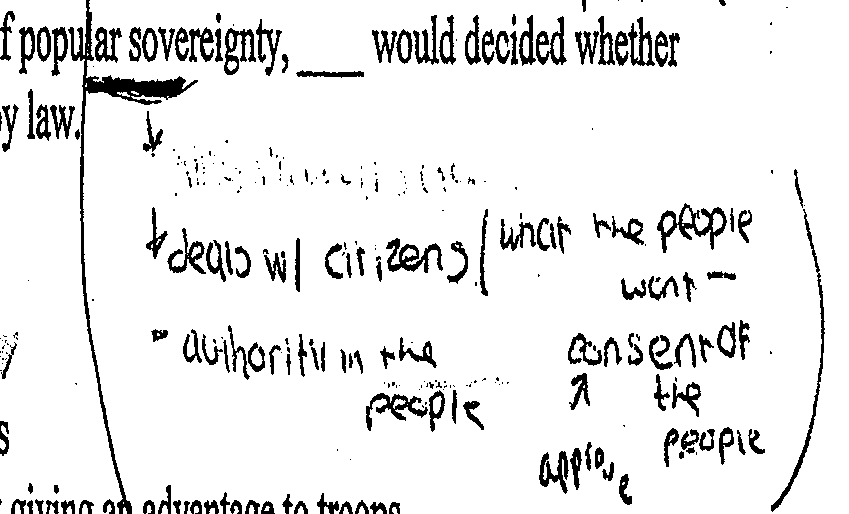 f popular sovereignty, ___ would decided whether
by law.
deals w/ citizens / what the people
want -
- authority in the
people
consent of
the
people
approve
s
giving an advantage to troops